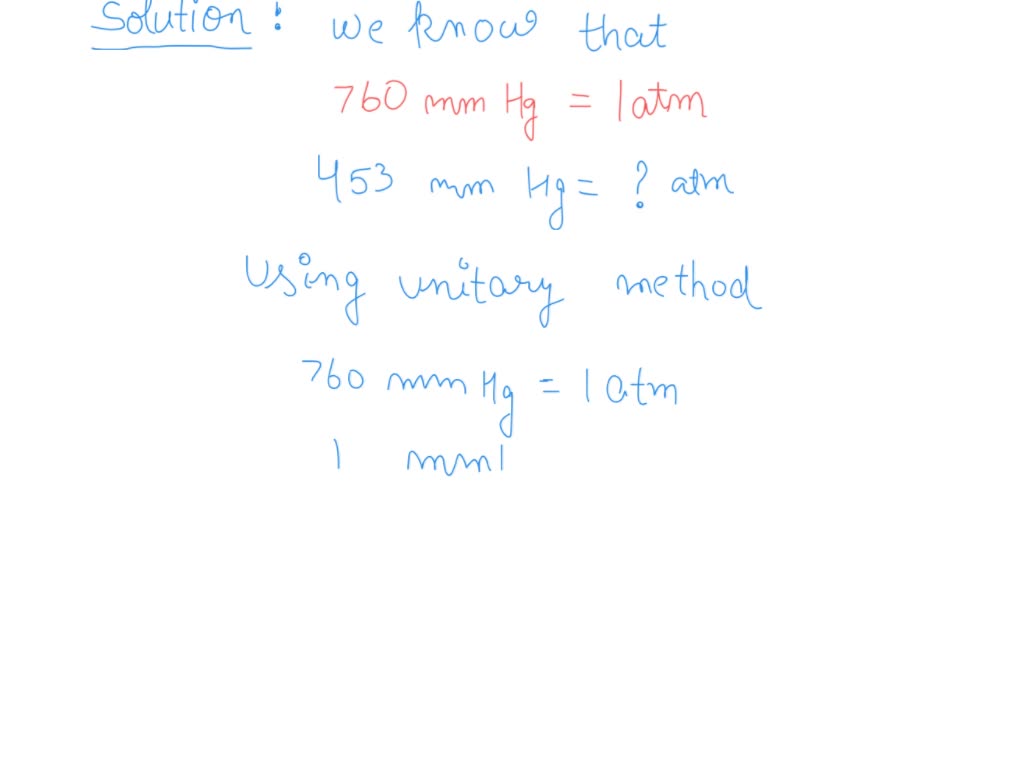 Solution : we know that
760 mm Hg = 1 atm
453 mm Hg = ? atm
Using unitary method
760 mm Hg = 1 atm
1 mm